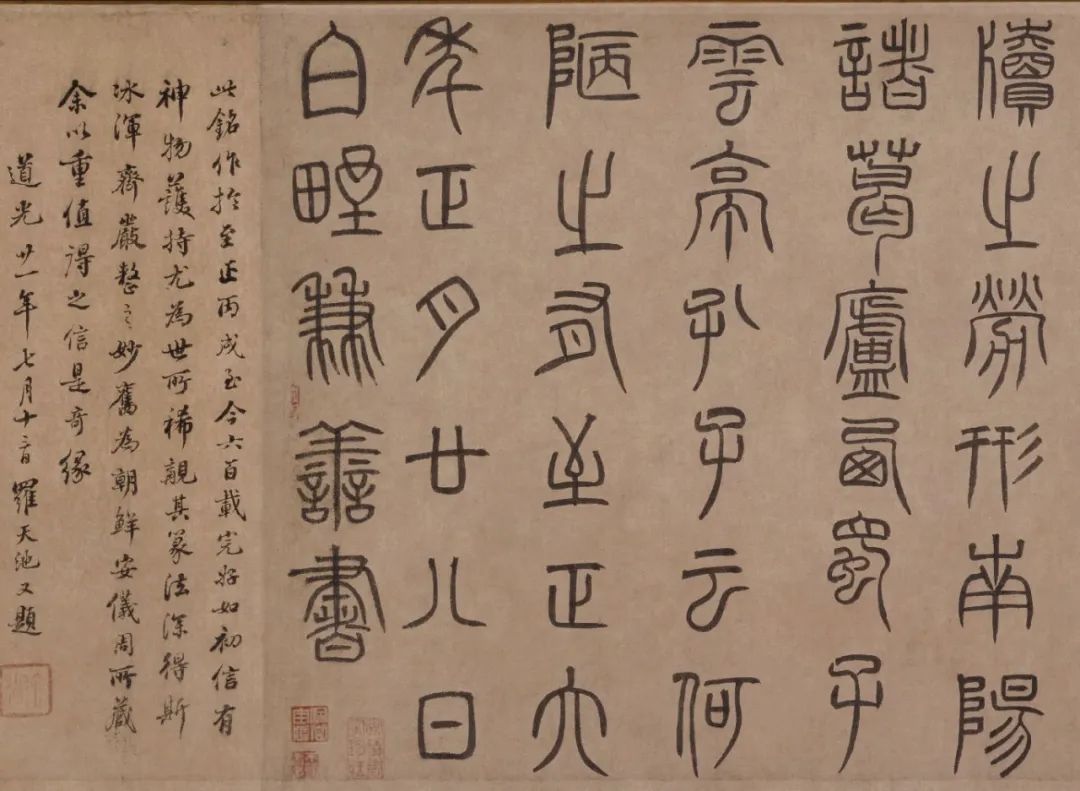 牘之勞形南陽
諸葛廬西蜀子
雲亭孔子云何
陋之有至正六
年正月廿八日
白野兼善書
此銘作於至正丙戌至今六百載完好如初信有
神物護持尤為世所稀覯其篆法深得斯
冰渾齊嚴整之妙舊為朝鮮安儀周所藏
余以重值得之信是奇緣
道光廿一年七月十日羅天池又題